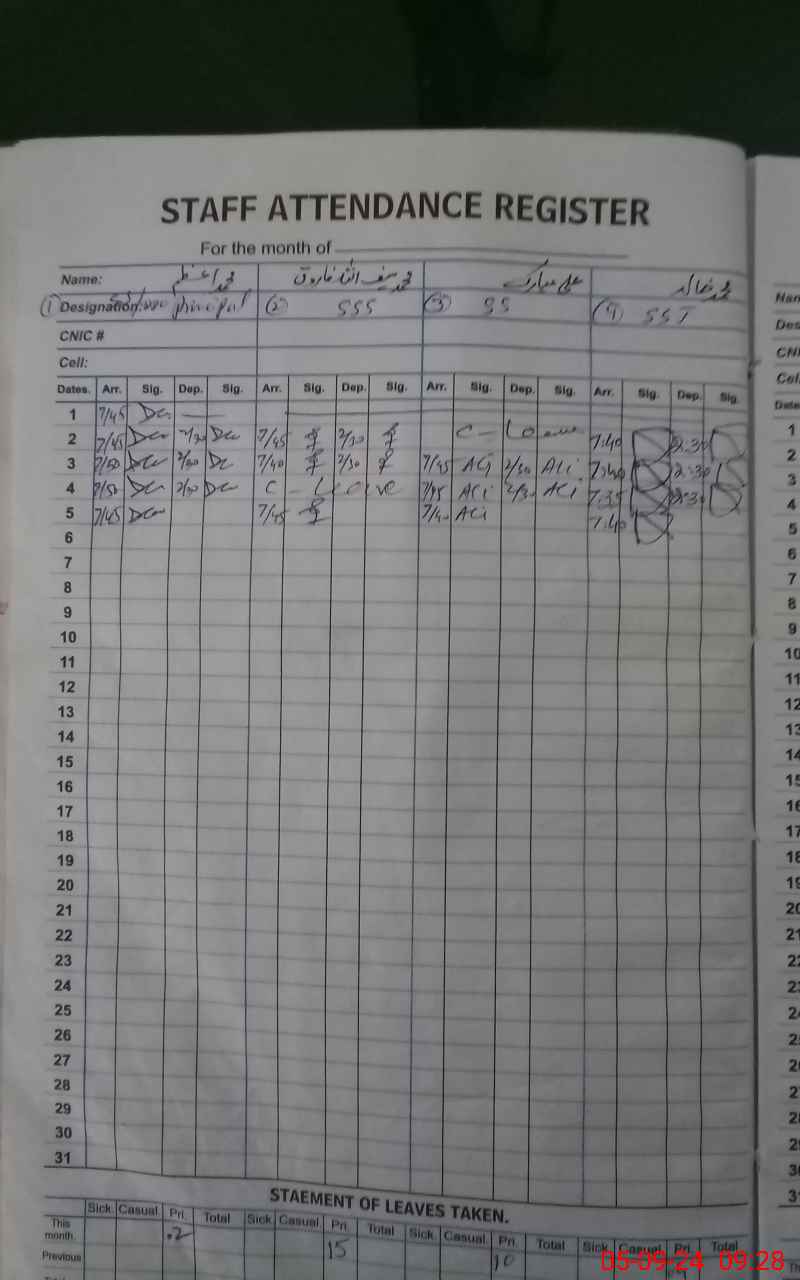 STAFF ATTENDANCE REGISTER
For the month of
Name: محمد اعظم محمد سیف اللہ فاروق علی مبارک محمد خالد
① Designation: principal ② SSS ③ SS ④ SST
CNIC #
Cell:
Dates. Arr. Sig. Dep. Sig. Arr. Sig. Dep. Sig. Arr. Sig. Dep. Sig. Arr. Sig. Dep. Sig.
1 7/45
2 7/45 7/45 2/30 C - Leave 7:40 2:30
3 7/50 7/40 2/30 7/45 Ali 2/30 Ali 7:40 2:30
4 7/50 C - Leave 7/45 Ali 2/30 Ali 7:35 2:30
5 7/45 7/45 7/40 Ali 7:40
6
7
8
9
10
11
12
13
14
15
16
17
18
19
20
21
22
23
24
25
26
27
28
29
30
31
STAEMENT OF LEAVES TAKEN.
Sick. Casual. Pri. Total Sick. Casual. Pri. Total Sick. Casual. Pri. Total Sick. Casual. Pri. Total
This month. .2 15 10
Previous
05-09-24 09:28
Des
CNI
Cel.
Date
1
2
3
4
5
6
7
8
9
10
11
12
13
14
15
16
17
18
19
20
21